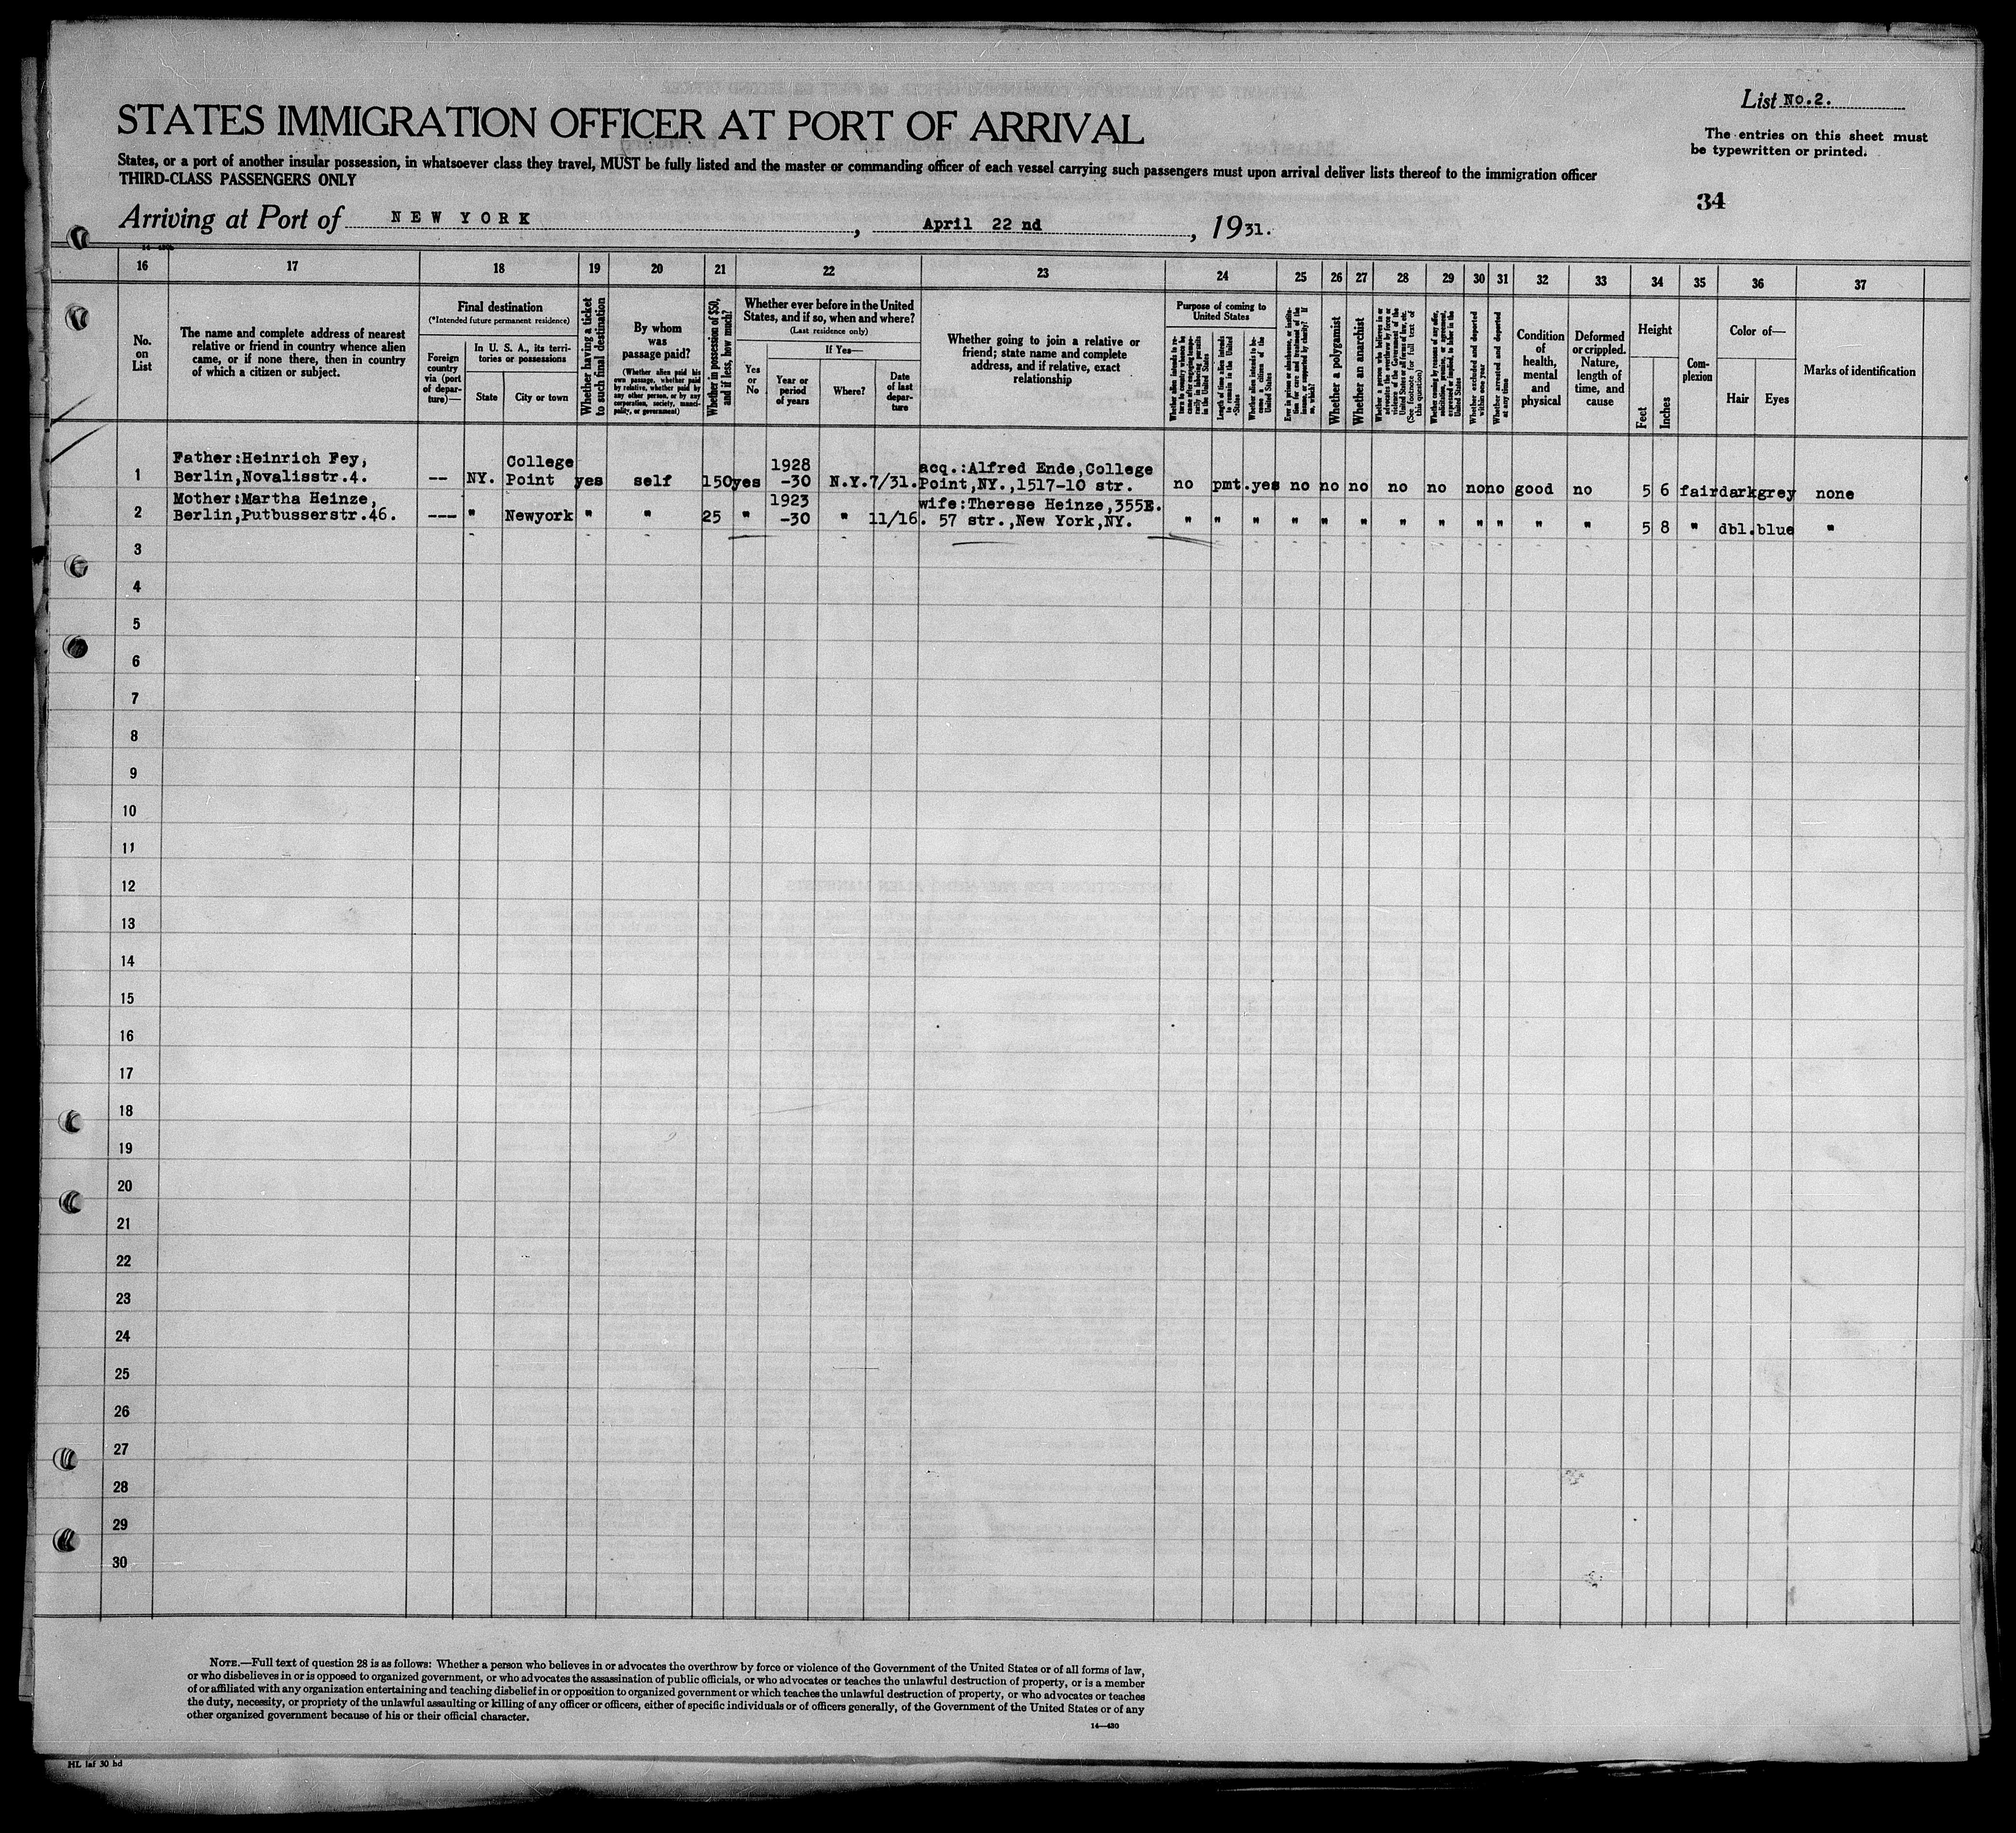 List No.2.
STATES IMMIGRATION OFFICER AT PORT OF ARRIVAL
The entries on this sheet must
be typewritten or printed.
States, or a port of another insular possession, in whatsoever class they travel, MUST be fully listed and the master or commanding officer of each vessel carrying such passengers must upon arrival deliver lists thereof to the immigration officer
THIRD-CLASS PASSENGERS ONLY
34
Arriving at Port of NEW YORK, April 22 nd, 1931.
16 17 18 19 20 21 22 23 24 25 26 27 28 29 30 31 32 33 34 35 36 37
No.
on
List
The name and complete address of nearest
relative or friend in country whence alien
came, or if none there, then in country
of which a citizen or subject.
Final destination
(*Intended future permanent residence)
Foreign
country
via (port
of depar-
ture)—
In U. S. A., its terri-
tories or possessions
State
City or town
Whether having a ticket
to such final destination
By whom
was
passage paid?
(Whether alien paid his
own passage, whether paid
by relative, whether paid by
any other person, or by any
corporation, society, munici-
pality, or government)
Whether in possession of $50,
and if less, how much?
Whether ever before in the United
States, and if so, when and where?
(Last residence only)
Yes
or
No
If Yes—
Year or
period
of years
Where?
Date
of last
depar-
ture
Whether going to join a relative or
friend; state name and complete
address, and if relative, exact
relationship
Purpose of coming to
United States
Whether alien intends to re-
turn to country whence he
came after engaging tempo-
rarily in laboring pursuits
in the United States
Length of time alien intends
to remain in the United
States
Whether alien intends to be-
come a citizen of the
United States
Ever in prison or almshouse, or institu-
tion for care and treatment of the
insane, or supported by charity? If
so, which?
Whether a polygamist
Whether an anarchist
Whether a person who believes in or
advocates the overthrow by force or
violence of the Government of the
United States or all forms of law, etc.
(See footnote for full text of
this question)
Whether coming by reason of any offer,
solicitation, promise, or agreement,
expressed or implied, to labor in the
United States
Whether excluded and deported
within one year
Whether arrested and deported
at any time
Condition
of
health,
mental
and
physical
Deformed
or crippled.
Nature,
length of
time, and
cause
Height
Feet
Inches
Com-
plexion
Color of—
Hair
Eyes
Marks of identification
1 Father:Heinrich Fey,
Berlin,Novalisstr.4. -- NY. College
Point yes self 150 yes 1928
-30 N.Y. 7/31. acq.:Alfred Ende,College
Point,NY.,1517-10 str. no pmt. yes no no no no no no no good no 5 6 fair dark grey none
2 Mother:Martha Heinze,
Berlin,Putbusserstr.46. --- " Newyork " " 25 " 1923
-30 " 11/16. wife:Therese Heinze,355E.
57 str.,New York,NY. " " " " " " " " " " " " 5 8 " dbl. blue "
3
4
5
6
7
8
9
10
11
12
13
14
15
16
17
18
19
20
21
22
23
24
25
26
27
28
29
30
NOTE.—Full text of question 28 is as follows: Whether a person who believes in or advocates the overthrow by force or violence of the Government of the United States or of all forms of law,
or who disbelieves in or is opposed to organized government, or who advocates the assassination of public officials, or who advocates or teaches the unlawful destruction of property, or is a member
of or affiliated with any organization entertaining and teaching disbelief in or opposition to organized government or which teaches the unlawful destruction of property, or who advocates or teaches
the duty, necessity, or propriety of the unlawful assaulting or killing of any officer or officers, either of specific individuals or of officers generally, of the Government of the United States or of any
other organized government because of his or their official character.
14—430
HL laf 30 hd